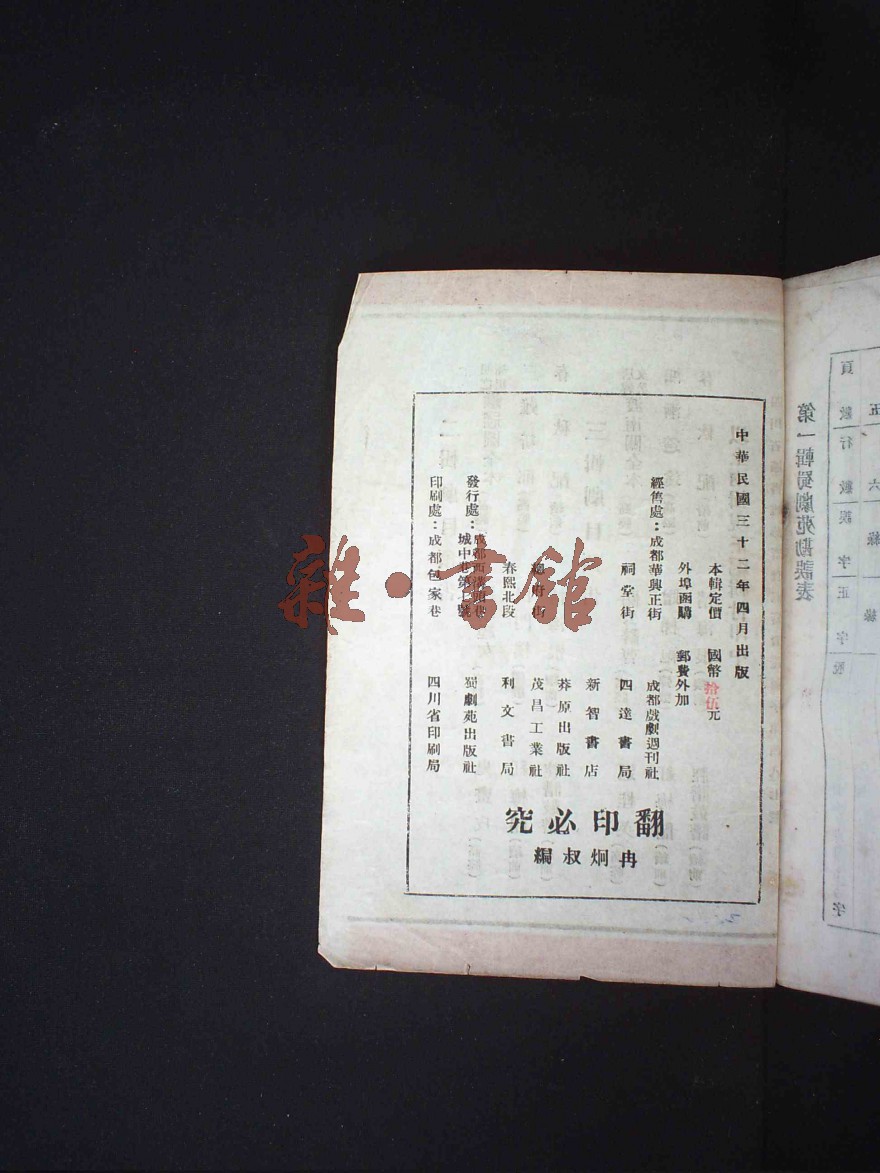 中華民國三十二年四月出版
本輯定價 國幣拾伍元
外埠函購 郵費外加
經售處：成都華興正街 成都戲劇週刊社
祠堂街 四達書局
新智書店
莽原出版社
總府街 茂昌工業社
春熙北段 利文書局
發行處：成都西
城中巷第七號 蜀劇苑出版社
印刷處：成都包家巷 四川省印刷局
翻印必究
冉炯叔編
雜·書館
第一輯蜀劇苑勘誤表
頁數
行數
誤字
正字
五
六